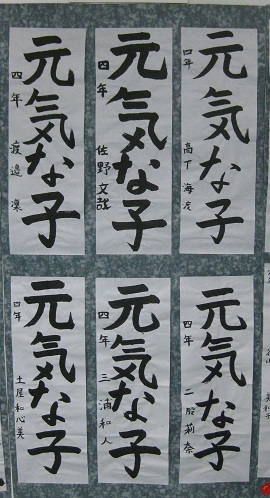 元気な子
四年
高下海
元気な子
四年
佐野文哉
元気な子
四年
渡邉凜
元気な子
四年
二股莉奈
元気な子
四年
三浦和人
元気な子
四年
土屋和心美